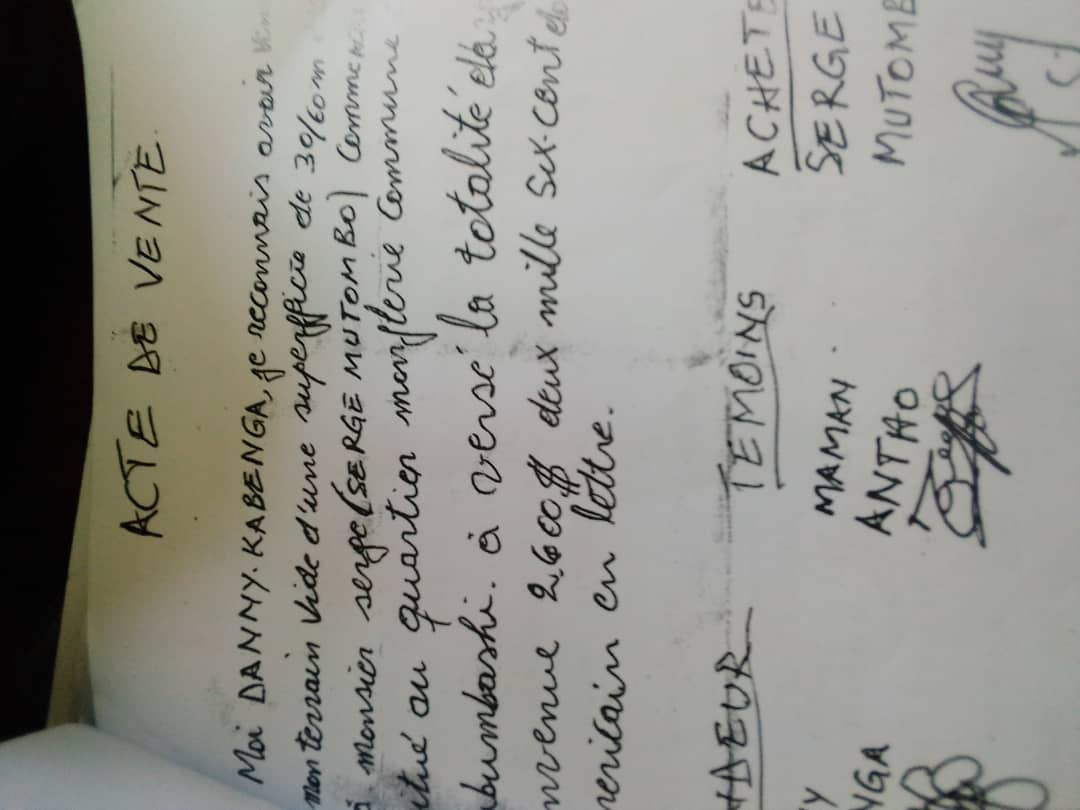 ACTE DE VENTE.
Moi DANNY. KABENGA, je reconnais avoir
mon terrain vide d'une superfficie de 30/60m
à monsier serge (SERGE MUTOMBO)
itué au quartier monflerie Commune
bumbashi. à versé la totalité
nvenue 2.600$ deux mille six-cent
mericain en lettre.
NDAEUR TEMOINS ACHETE
Y MAMAN SERGE
NGA ANTHO MUTOMB